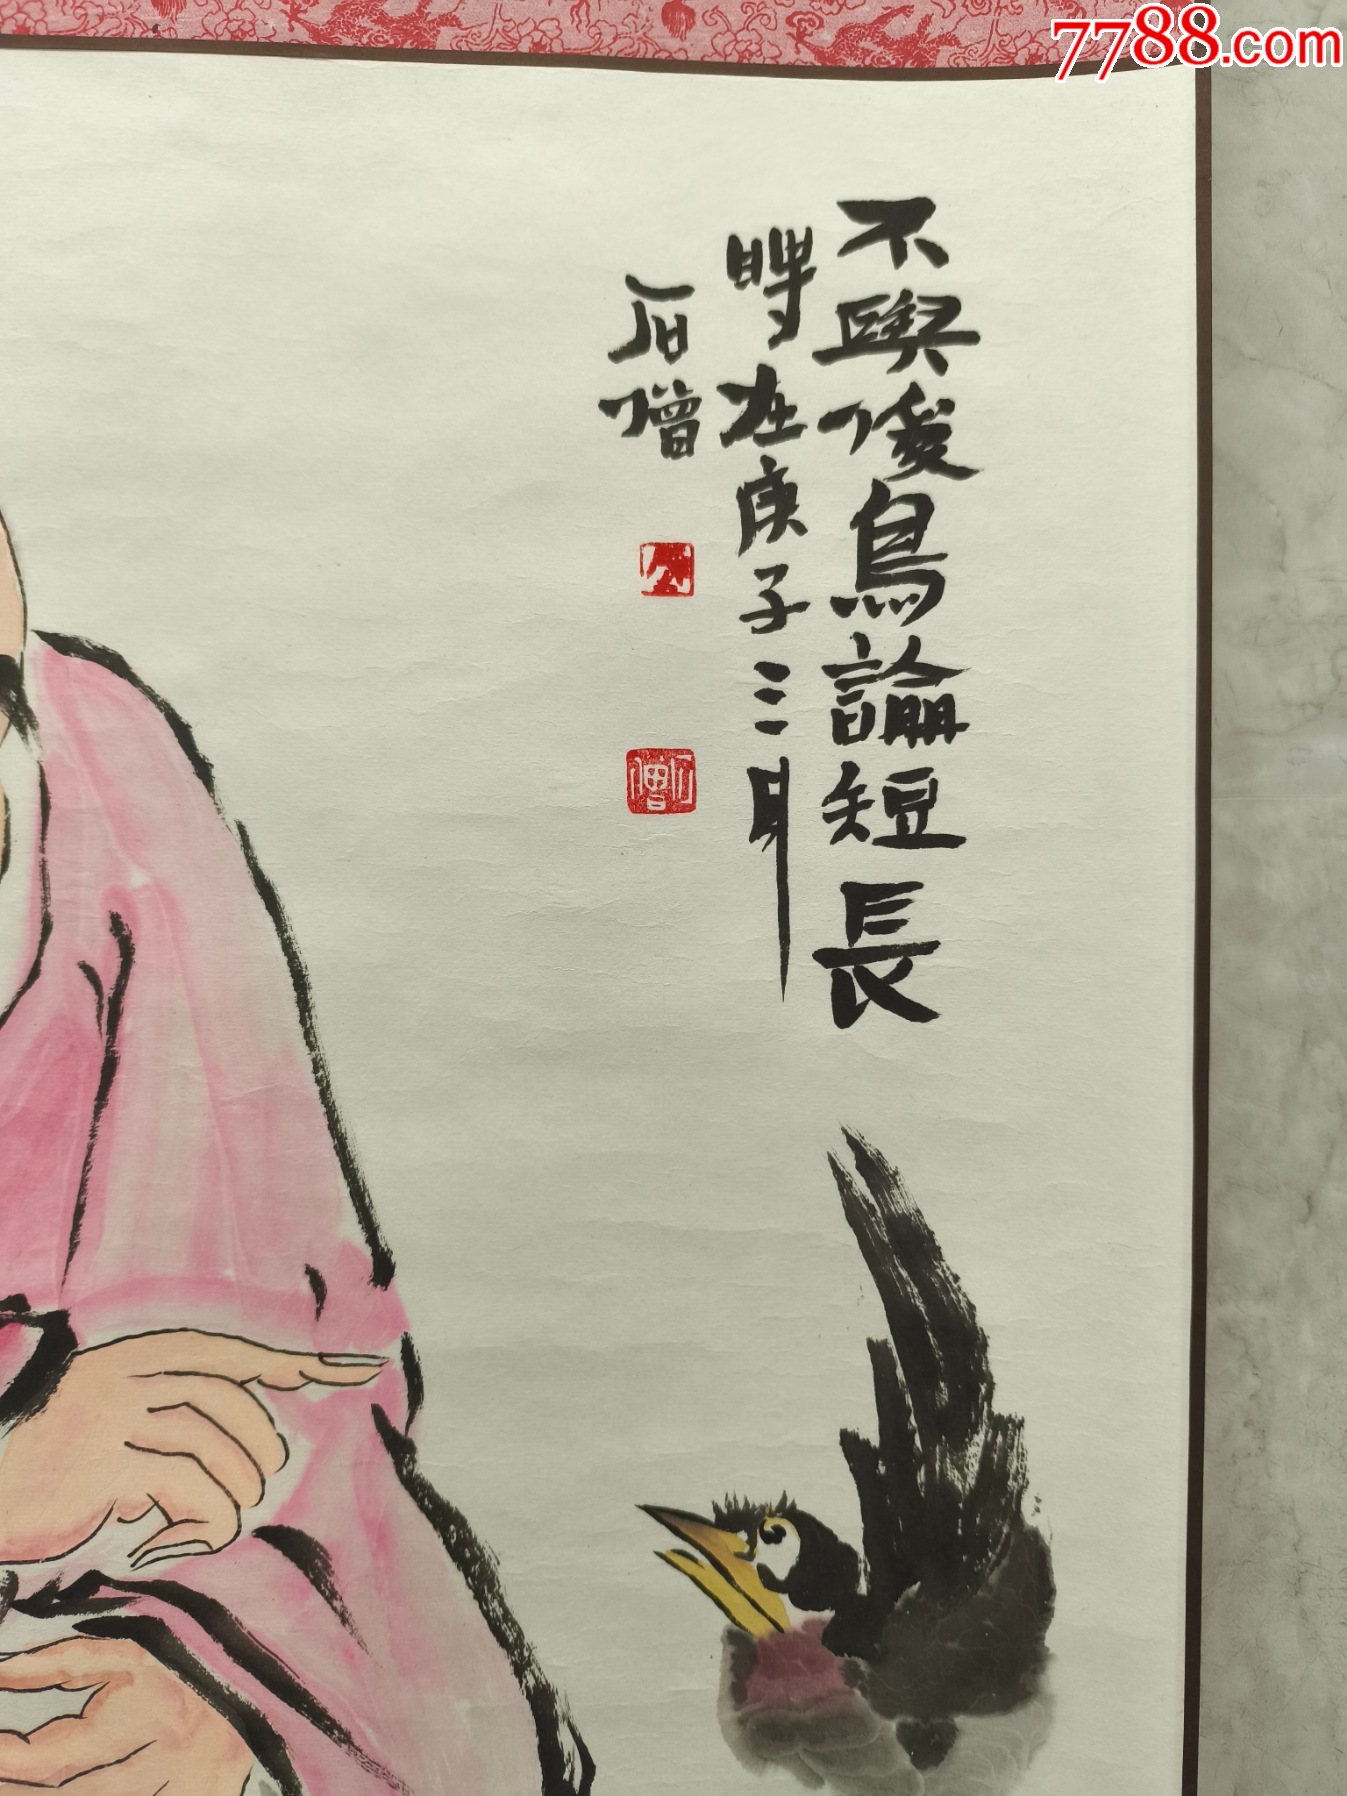 7788.com
不與傻鳥論短長
時在庚子三月
石僧
石僧